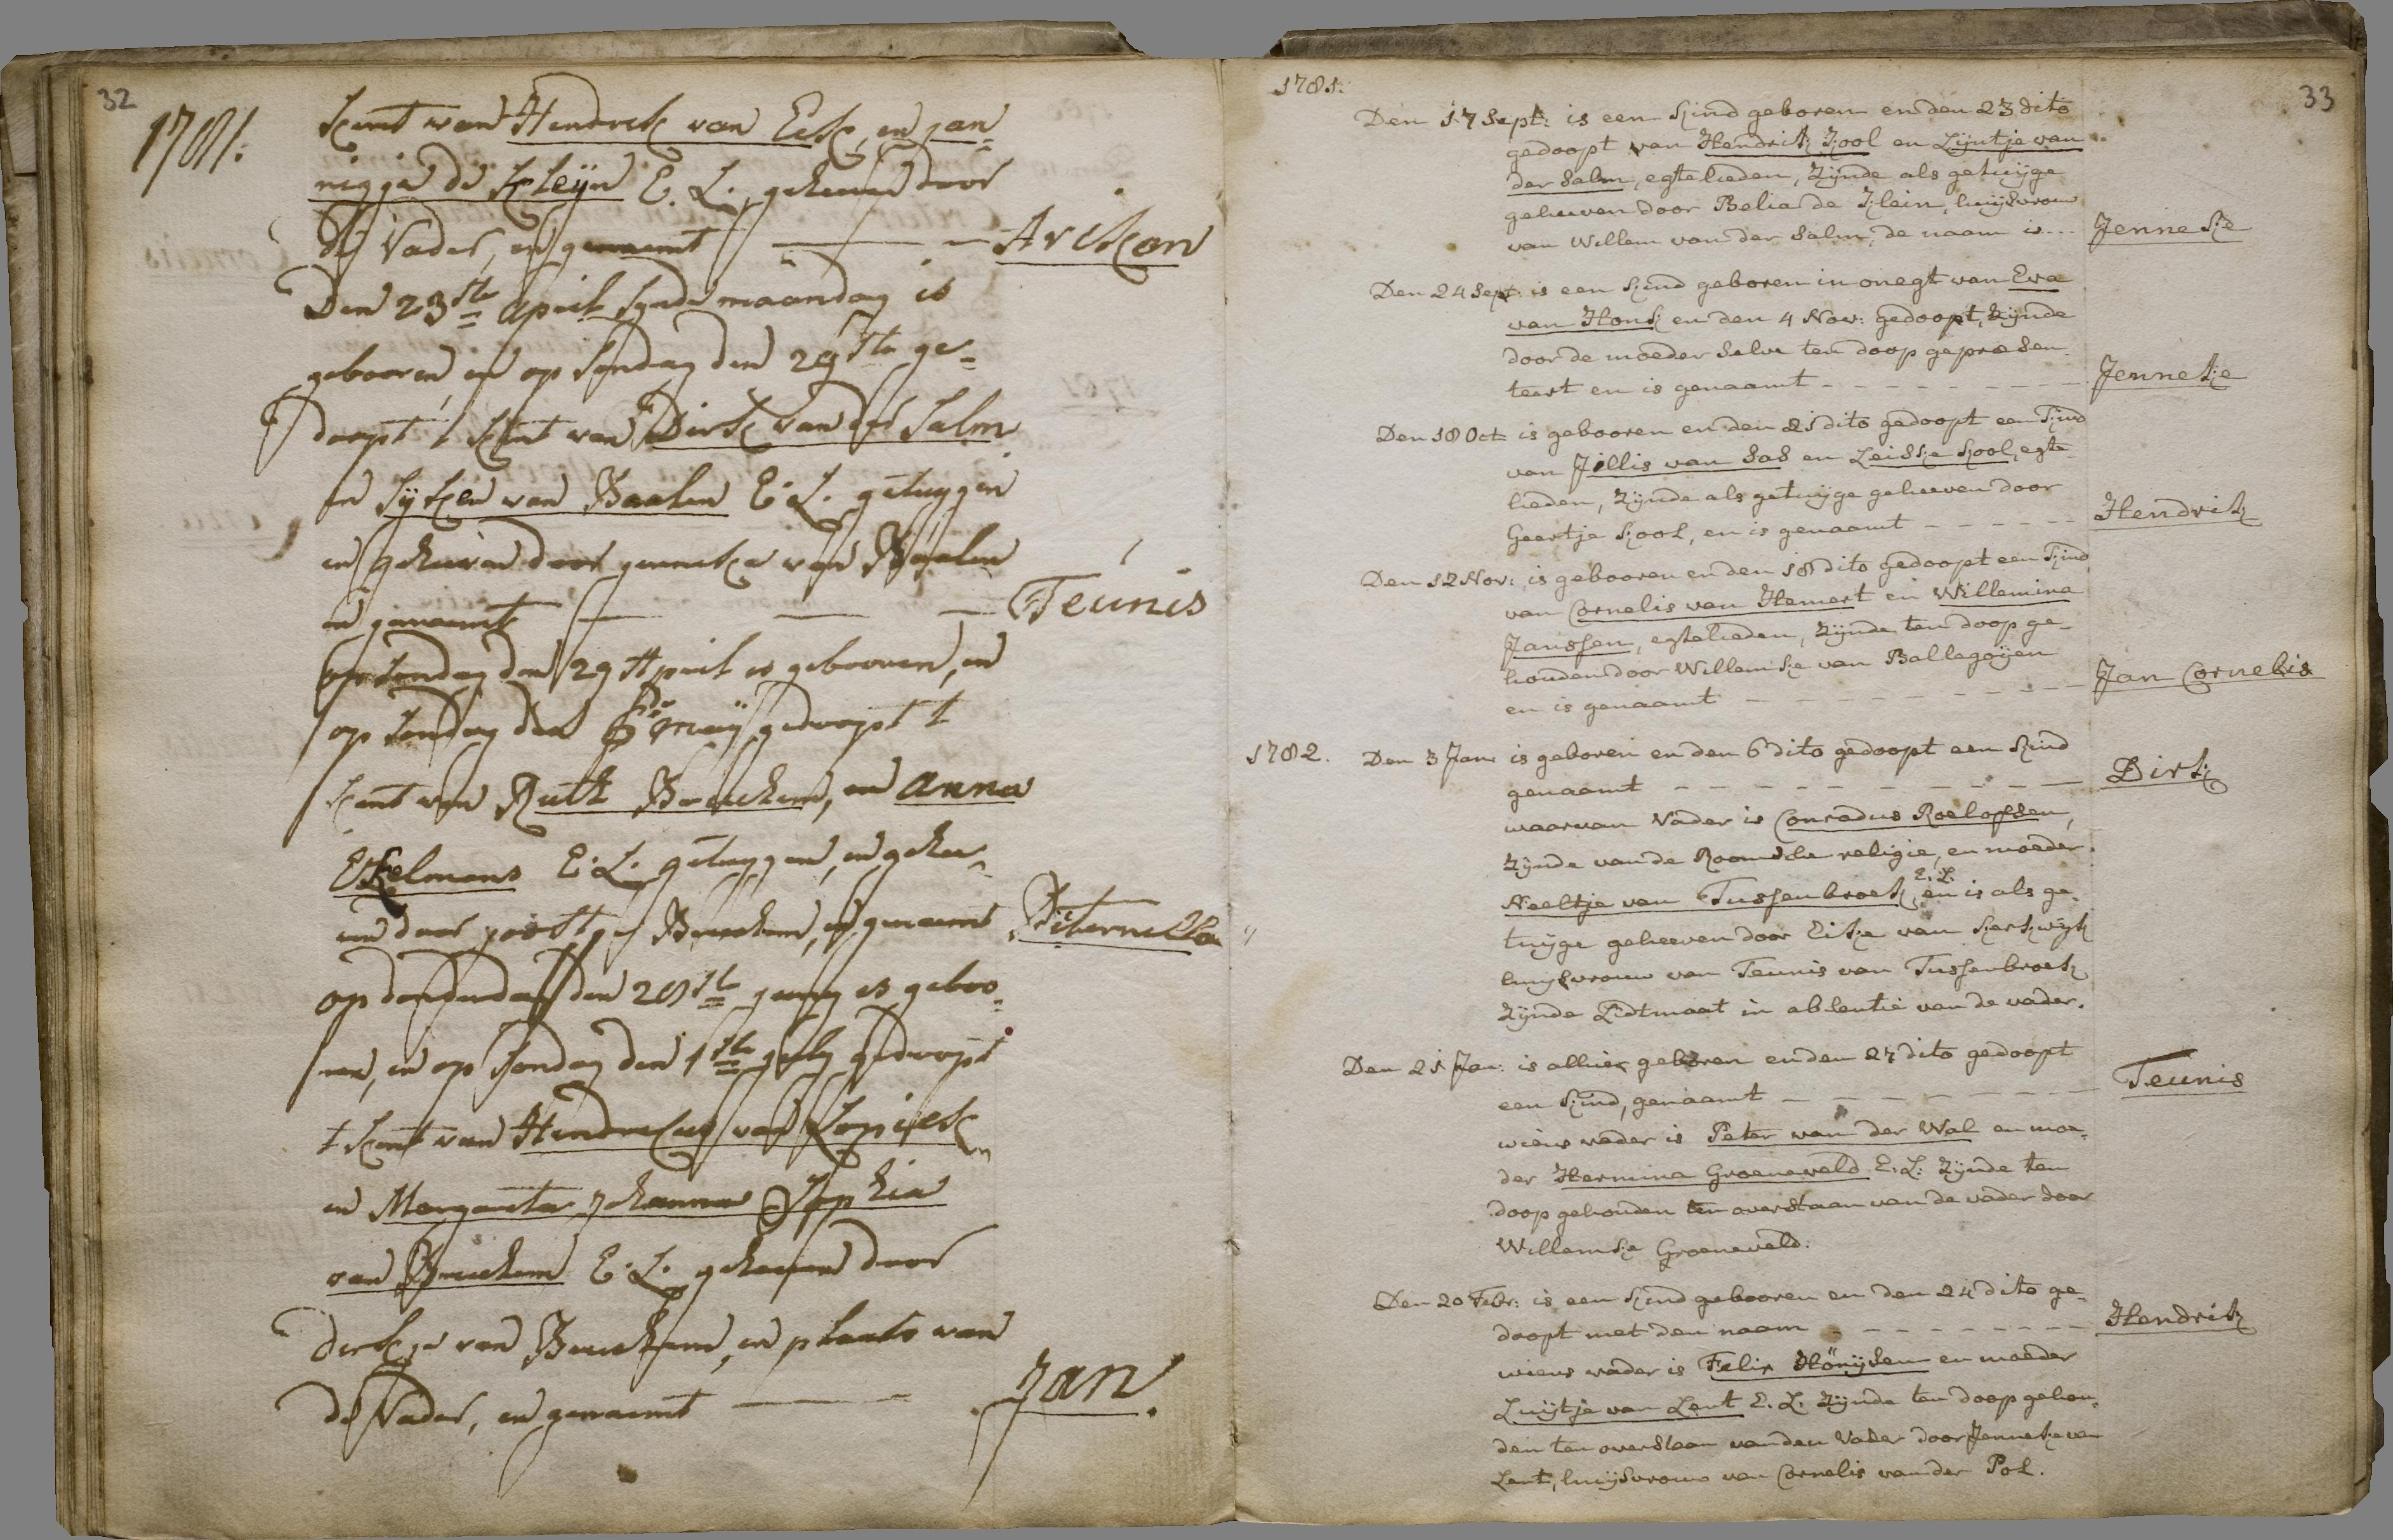 32
1781.
kint van Hendrik van Eck, en Jan=
nigje de Kleijn E. L. geheven door
de Vader, en genaemt — — Ariken
Den 23ste April synde maandag is
gebooren, en op Sondag den 29ste ge=
doopt t kint van Dirk van der Salm
en Sijken van Baalen E. L. getuygen
en geheven door Jenneke van Baalen
en genaemt — — — Teunis
op Sondag den 29 April is gebooren, en
op Sondag den may gedoopt t
kint van Ruth Breuchem, en Anna
Ekelmans E. L. getuygen, en gehe=
ven door Joostje Breuchem, en genaemt Piternella
op donderdag den 28ste Juny is geboo=
ren, en op Sondag den 1ste July gedoopt
t kint van Hendrikus van Kopiek
en Margareta Johanna Sophia
van Breuchem E. L. geheven door
Dirkje van Breuchem, in plaats van
de Vader, en genaemt — — Jan.
33
1781.
Den 17 Sept: is een kind geboren en den 23 dito
gedoopt van Hendrik Kool en Lijntje van
der Salm, egtelieden, zijnde als getuijge
geheeven door Belia de Klein, huijsvrouw
van Willem van der Salm, de naam is... Jenneke
Den 24 Sept: is een kind geboren in onegt van Eva
van Honk en den 4 Nov: gedoopt, zijnde
door de moeder selve ten doop gepræsen-
teert en is genaamt - - - - - - - - Jenneke
Den 18 Oct: is gebooren en den 21 dito gedoopt een kind
van Jillis van Sas en Leiske Kool, egte-
lieden, zijnde als getuijge geheeven door
Geertje Kool, en is genaamt - - - - - Hendrik
Den 12 Nov: is gebooren en den 18 dito gedoopt een kind
van Cornelis van Hemert en Willemina
Janssen, egtelieden, zijnde ten doop ge-
houden door Willemke van Ballegoijen
en is genaamt - - - - - - - - Jan Cornelis
1782. Den 3 Jan: is geboren en den 6 dito gedoopt een kind
genaamt - - - - - - - - - Dirk
waarvan Vader is Conradus Roelofsen,
zijnde van de Roomsche religie, en moeder
Neeltje van Tussenbroek, E. L. en is als ge-
tuijge geheeven door Eike van Kerkwijk
huijsvrouw van Teunis van Tussenbroek
zijnde Lidtmaat in absentie van de vader.
Den 21 Jan: is alhier geboren en den 27 dito gedoopt
een kind, genaamt - - - - - - - Teunis
wiens vader is Peter van der Wal en moe-
der Hermina Groeneveld E. L: zijnde ten
doop gehouden ten overstaan van de vader door
Willemke Groeneveld.
Den 20 Febr: is een kind gebooren en den 24 dito ge-
doopt met den naam - - - - - - - - Hendrik
wiens vader is Felix Hönijsen en moeder
Luijtje van Lent E. L. zijnde ten doop gehou-
den ten overstaan van den Vader door Jenneke van
Lent, huijsvrouw van Cornelis van der Pol.